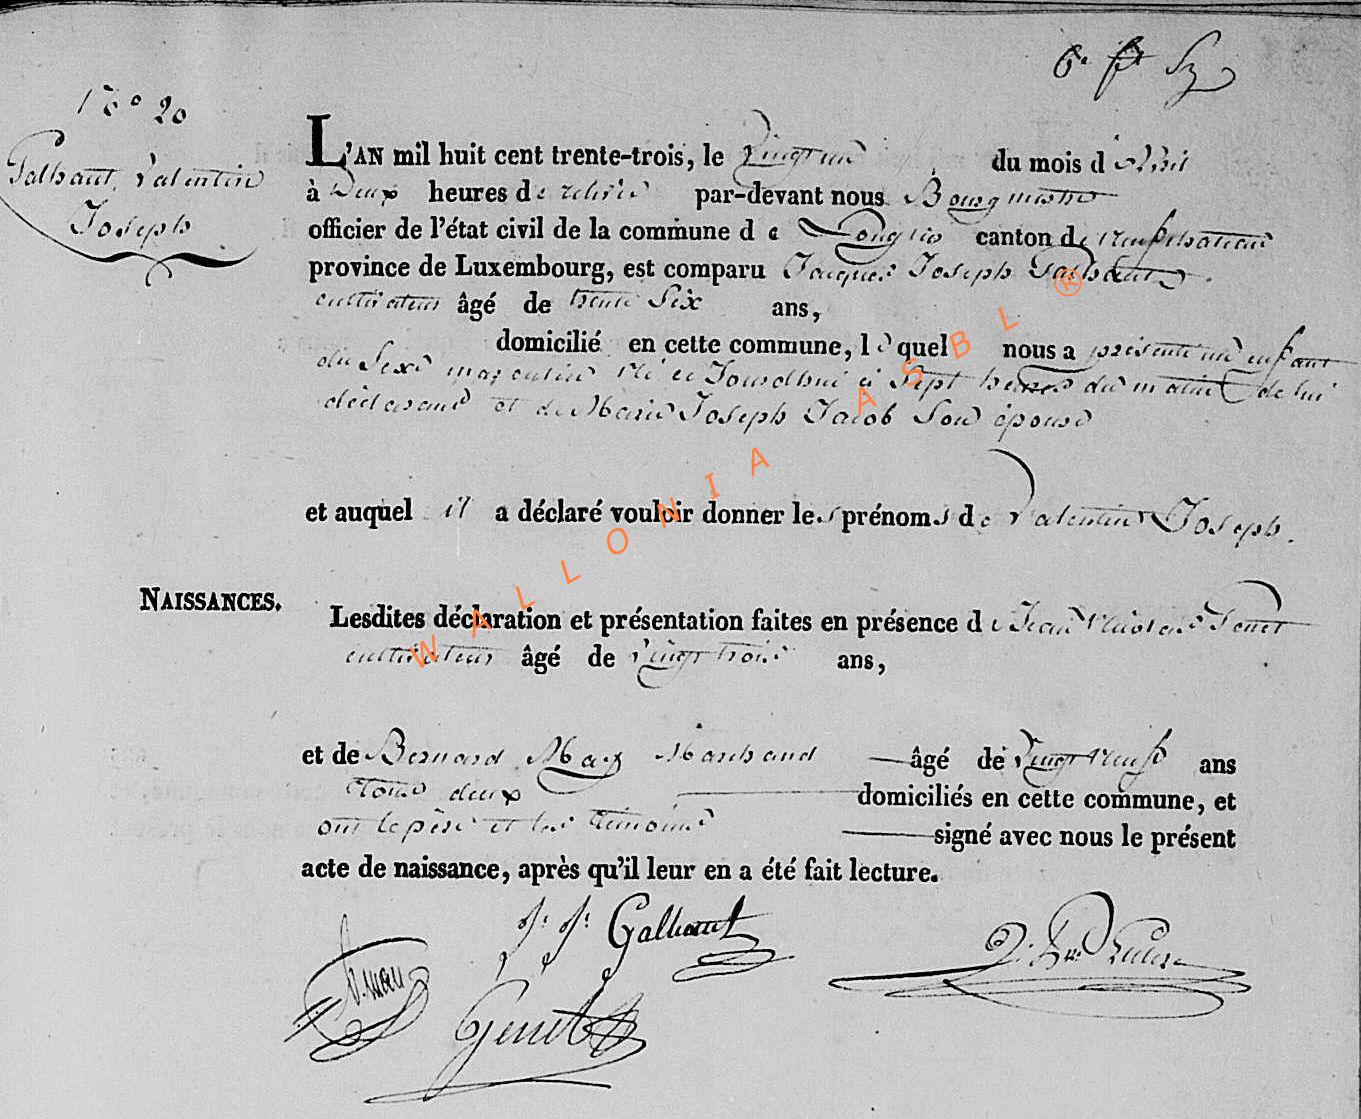 N° 20
Galhaut, Valentin
Joseph
L'AN mil huit cent trente-trois, le Vingt un du mois d'Avril
à Deux heures de relevée par-devant nous Bourgmestre
officier de l'état civil de la commune de Longlier canton de Neufchateau
province de Luxembourg, est comparu Jacques Joseph Galhaut
cultivateur âgé de trente Six ans,
domicilié en cette commune, lequel nous a présenté un enfant
du Sexe masculin Né ce Jourdhui à Sept heures du matin de lui
déclarant et de Marie Joseph Jacob Son épouse
et auquel il a déclaré vouloir donner les prénoms de Valentin Joseph.
NAISSANCES.
Lesdites déclaration et présentation faites en présence de Jean
cultivateur âgé de Vingt trois ans,
et de Bernard May Marchand âgé de Vingt Neuf ans
Tous deux domiciliés en cette commune, et
ont le père et les témoins signé avec nous le présent
acte de naissance, après qu'il leur en a été fait lecture.
J. J. Galhaut
WALLONIA ASBL ®